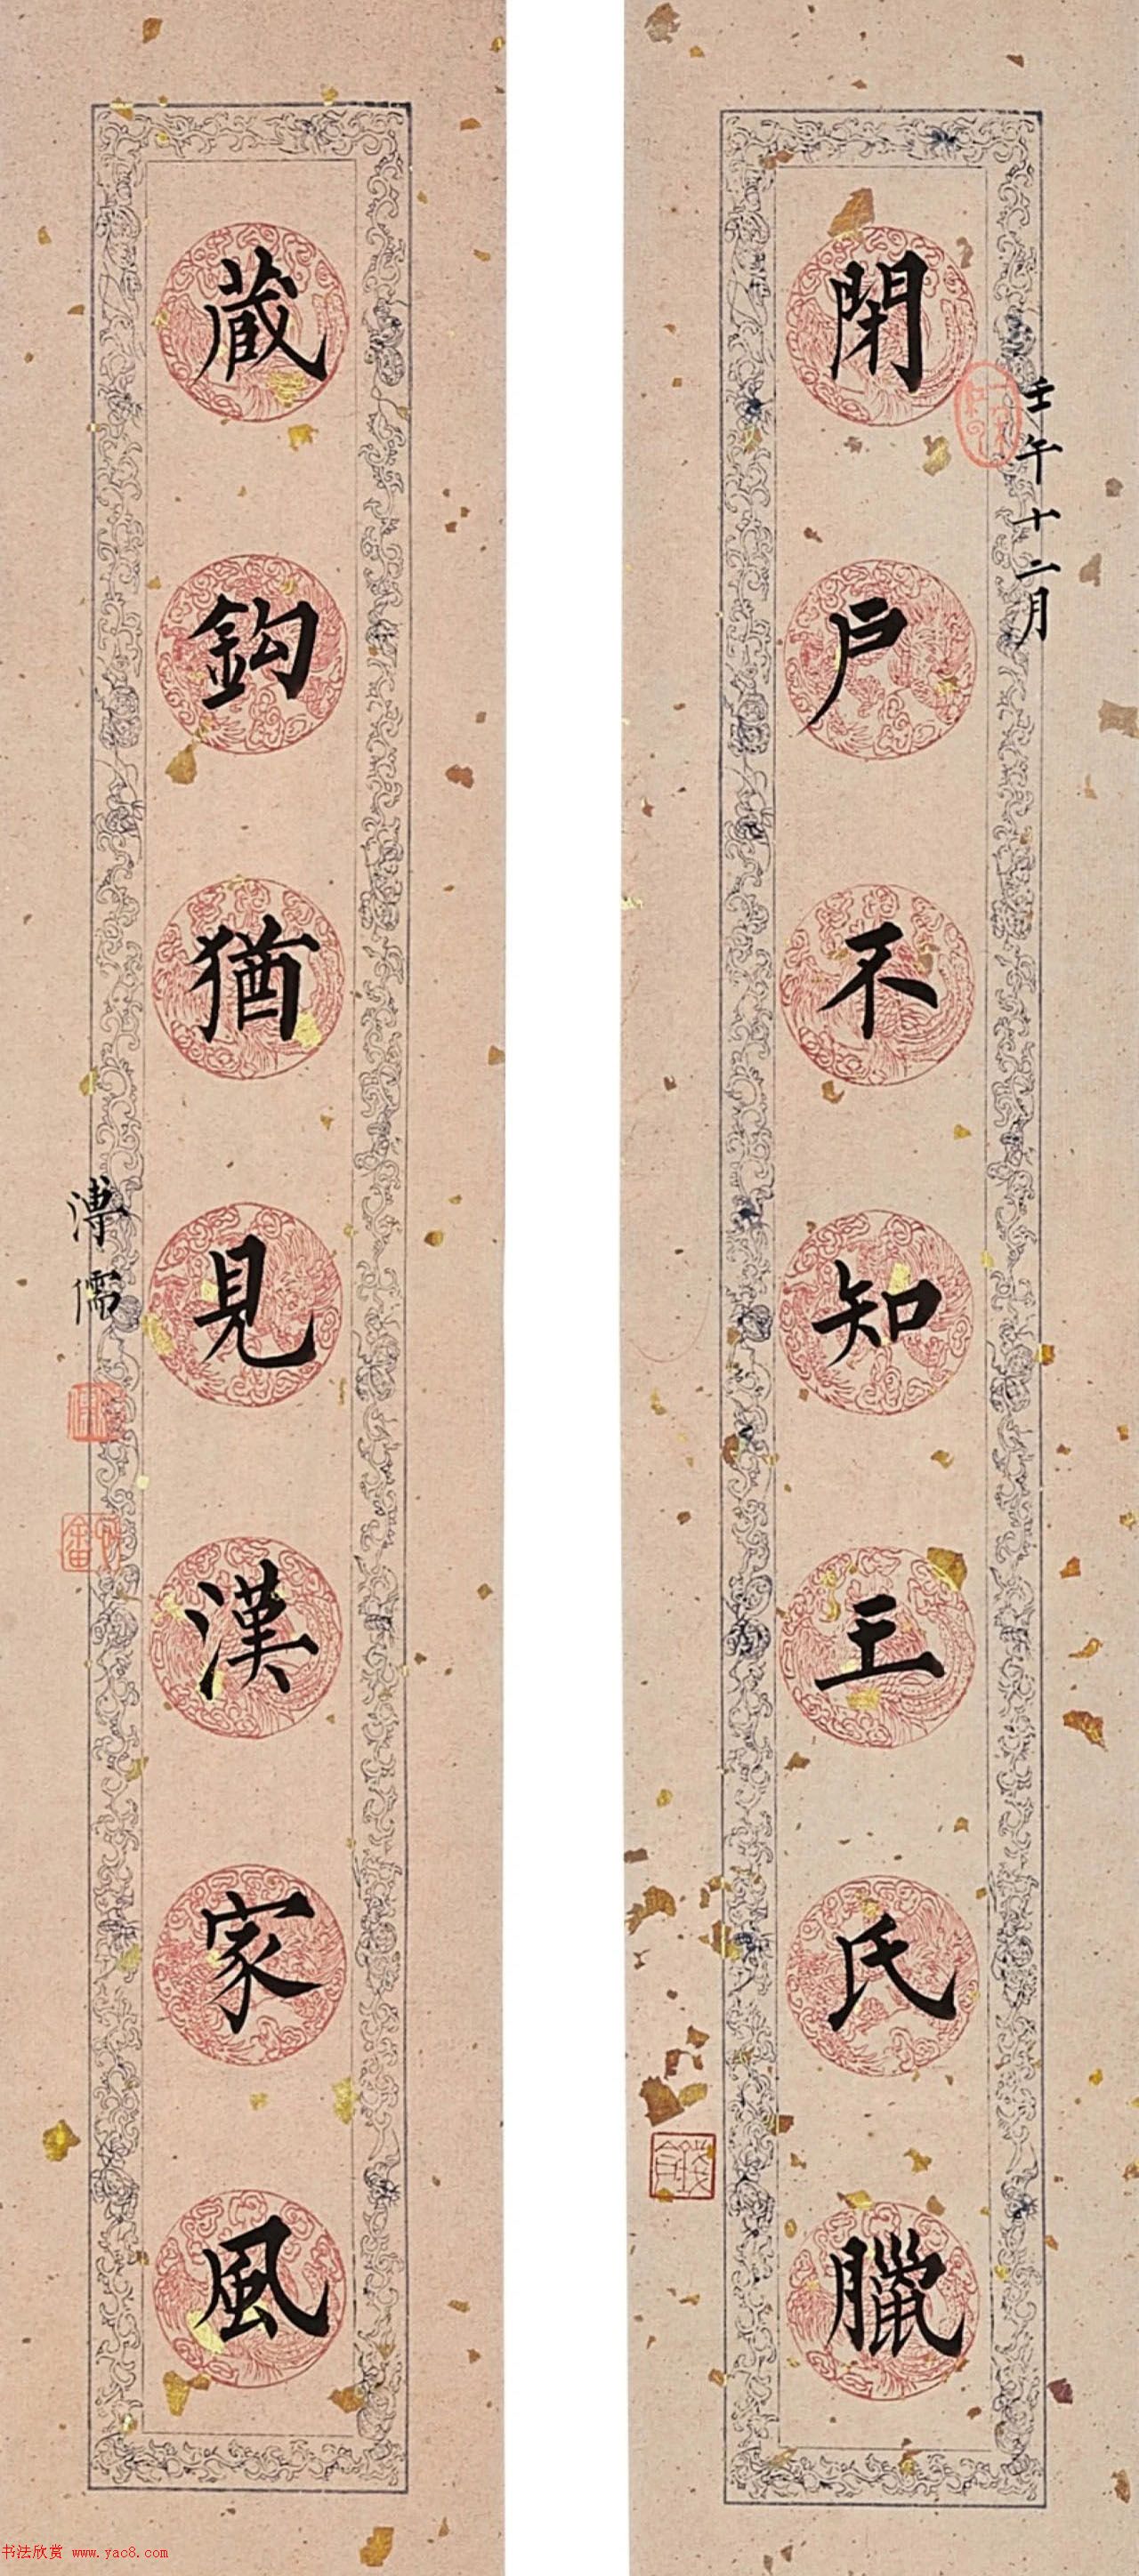 閉戶不知王氏臘
壬午十二月
藏鉤猶見漢家風
溥儒
书法欣赏 www.yac8.com